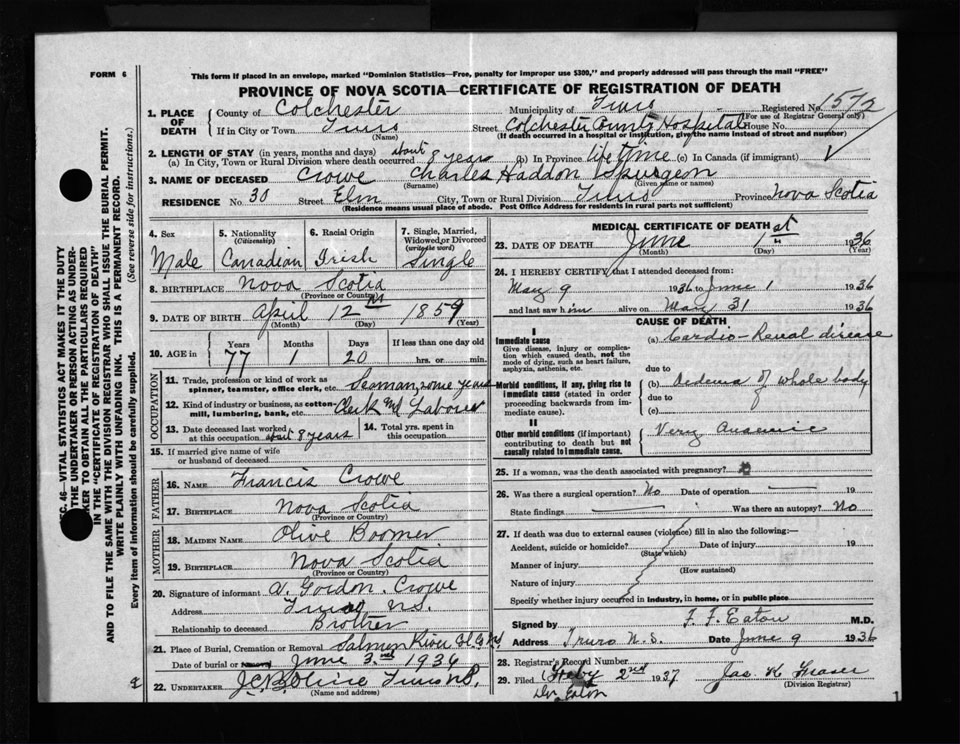 FORM 6
This form if placed in an envelope, marked "Dominion Statistics—Free, penalty for improper use $300," and properly addressed will pass through the mail "FREE"
PROVINCE OF NOVA SCOTIA—CERTIFICATE OF REGISTRATION OF DEATH
1. PLACE OF DEATH County of Colchester Municipality of Truro Registered No. 1572
(For use of Registrar General only)
If in City or Town Truro (Name) Street Colchester County Hospital House No.
(If death occurred in a hospital or institution, give the name instead of street and number)
2. LENGTH OF STAY (in years, months and days)
(a) In City, Town or Rural Division where death occurred about 8 years (b) In Province life time (c) In Canada (if immigrant)
3. NAME OF DECEASED Crowe Charles Haddon Spurgeon
(Surname) (Given name or names)
RESIDENCE No. 30 Street Elm City, Town or Rural Division Truro Province Nova Scotia
(Residence means usual place of abode. Post Office Address for residents in rural parts not sufficient)
4. Sex Male
5. Nationality (Citizenship) Canadian
6. Racial Origin Irish
7. Single, Married, Widowed or Divorced (write the word) Single
8. BIRTHPLACE Nova Scotia
(Province or Country)
9. DATE OF BIRTH April 12th 1859
(Month) (Day) (Year)
10. AGE in Years 77 Months 1 Days 20 If less than one day old hrs. or min.
OCCUPATION
11. Trade, profession or kind of work as spinner, teamster, office clerk, etc. Seaman, some years
12. Kind of industry or business, as cotton-mill, lumbering, bank, etc. Clerk Laborer
13. Date deceased last worked at this occupation about 8 years
14. Total yrs. spent in this occupation
15. If married give name of wife or husband of deceased
FATHER
16. NAME Francis Crowe
17. BIRTHPLACE Nova Scotia
(Province or Country)
MOTHER
18. MAIDEN NAME Olive Boomer
19. BIRTHPLACE Nova Scotia
(Province or Country)
20. Signature of informant A. Gordon. Crowe
Address Truro N.S.
Relationship to deceased Brother
21. Place of Burial, Cremation or Removal Salmon River
Date of burial June 3rd 1936
22. UNDERTAKER Truro N.S.
(Name and address)
MEDICAL CERTIFICATE OF DEATH
23. DATE OF DEATH June 1st 1936
(Month) (Day) (Year)
24. I HEREBY CERTIFY that I attended deceased from:
May 9 1936 to June 1 1936
and last saw him alive on May 31 1936
CAUSE OF DEATH
I
Immediate cause
Give disease, injury or complication which caused death, not the mode of dying, such as heart failure, asphyxia, asthenia, etc.
(a) Cardio-Renal disease
due to
Morbid conditions, if any, giving rise to immediate cause (stated in order proceeding backwards from immediate cause).
(b) Oedema of whole body
due to
(c)
II
Other morbid conditions (if important) contributing to death but not causally related to immediate cause.
Very Anaemic
25. If a woman, was the death associated with pregnancy?
26. Was there a surgical operation? No Date of operation 19
State findings Was there an autopsy? No
27. If death was due to external causes (violence) fill in also the following:—
Accident, suicide or homicide? Date of injury 19
(State which)
Manner of injury
(How sustained)
Nature of injury
Specify whether injury occurred in industry, in home, or in public place
Signed by F. F. Eaton M.D.
Address Truro N.S. Date June 9 1936
28. Registrar's Record Number
29. Filed Feby 2nd 1937 Jas. K Fraser
(Division Registrar)
Dr Eaton
SEC. 46—VITAL STATISTICS ACT MAKES IT THE DUTY OF THE UNDERTAKER OR PERSON ACTING AS UNDERTAKER TO OBTAIN ALL THE PARTICULARS REQUIRED IN THE "CERTIFICATE OF REGISTRATION OF DEATH" AND TO FILE THE SAME WITH THE DIVISION REGISTRAR WHO SHALL ISSUE THE BURIAL PERMIT.
WRITE PLAINLY WITH UNFADING INK. THIS IS A PERMANENT RECORD.
Every item of information should be carefully supplied. (See reverse side for instructions.)